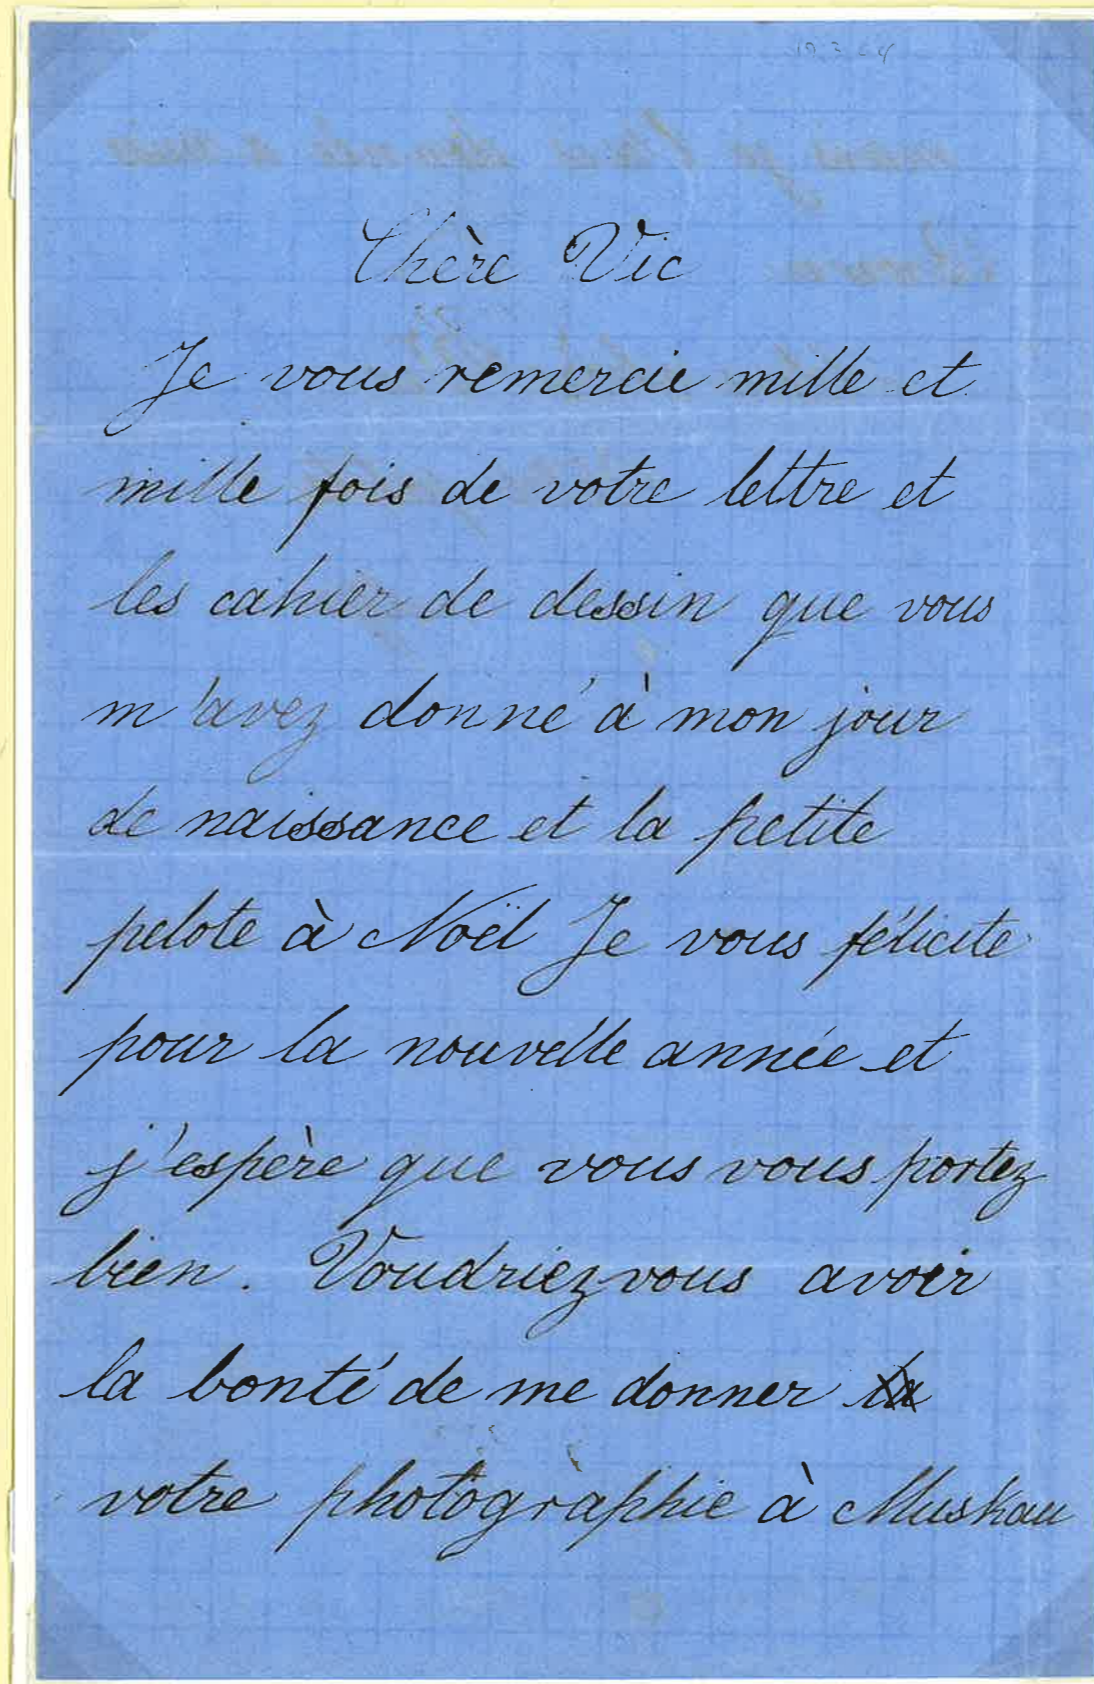 Chère Vic
Je vous remercie mille et
mille fois de votre lettre et
les cahier de dessin que vous
m'avez donné à mon jour
de naissance et la petite
pelote à Noël Je vous félicite
pour la nouvelle année et
j'espère que vous vous portez
bien. Voudriez vous avoir
la bonté de me donner
votre photographie à Muskau